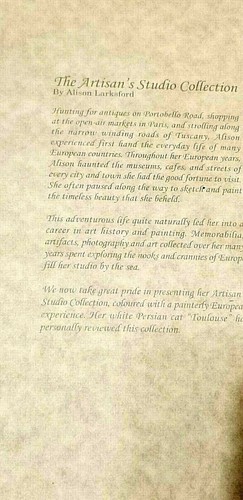 The Artisan's Studio Collection
By Alison Larksford
Hunting for antiques on Portobello Road, shopping
at the open-air markets in Paris, and strolling along
the narrow winding roads of Tuscany, Alison
experienced first hand the everyday life of many
European countries. Throughout her European years,
Alison haunted the museums, cafes, and streets of
every city and town she had the good fortune to visit.
She often paused along the way to sketch and paint
the timeless beauty that she beheld.
This adventurous life quite naturally led her into a
career in art history and painting. Memorabilia,
artifacts, photography and art collected over her many
years spent exploring the nooks and crannies of Europe
fill her studio by the sea.
We now take great pride in presenting her Artisan
Studio Collection, coloured with a painterly European
experience. Her white Persian cat "Toulouse" ha
personally reviewed this collection.